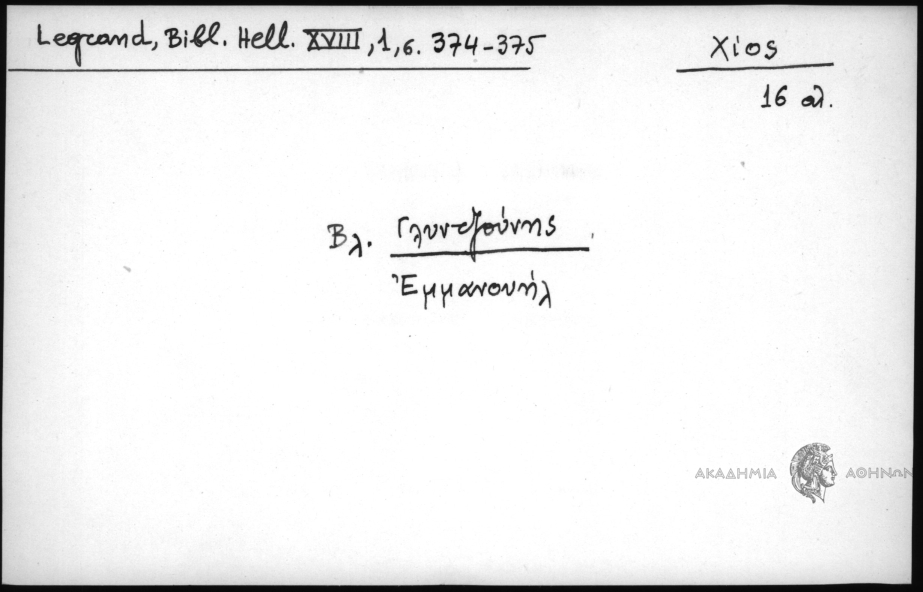 Legrand, Bibl. Hell. XVIII, 1, σ. 374-375
Χίος
16 αἰ.
Βλ. Γλυντζούνης
Ἐμμανουήλ
ΑΚΑΔΗΜΙΑ ΑΘΗΝΩΝ